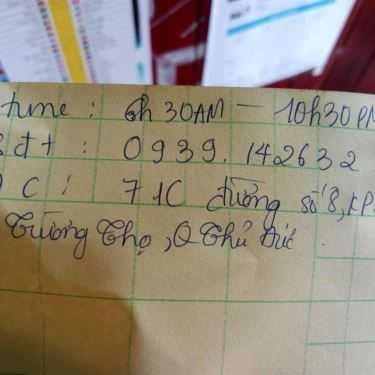 time : 6h 30AM — 10h30PM
Sđt : 0939.142632
ĐC : 71C đường số 8, KP.
Trường Thọ, Q Thủ Đức.